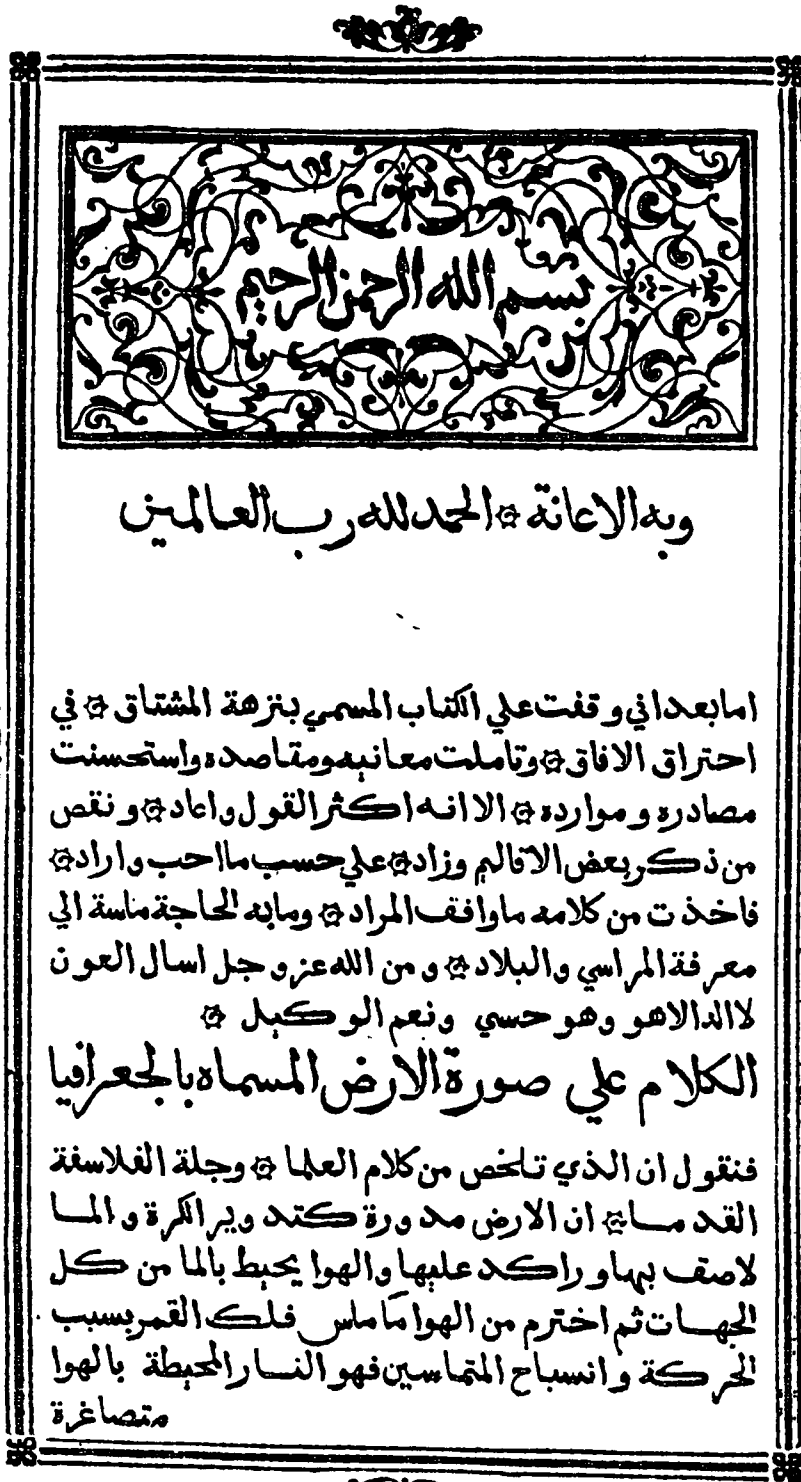 بسم الله الرحمن الرحيم
وبه الاعانة ۞ الحمد لله رب العالمين
اما بعد اني وقفت علي الكتاب المسمي بنزهة المشتاق ۞ في
احتراق الافاق ۞ وتاملت معانيه ومقاصده واستحسنت
مصادره وموارده ۞ الا انه اكثر القول واعاد ۞ ونقص
من ذكر بعض الاقاليم وزاد ۞ علي حسب ما احب واراد ۞
فاخذت من كلامه ما وافق المراد ۞ وما به الحاجة ماسة الي
معرفة المراسي والبلاد ۞ ومن الله عز وجل اسال العون
لا اله الا هو وهو حسبي ونعم الوكيل ۞
الكلام علي صورة الارض المسماة بالجعرافيا
فنقول ان الذي تلخص من كلام العلما ۞ وجلة الفلاسفة
القدما ۞ ان الارض مدورة كتدوير الكرة والما
لاصق بها وراكد عليها والهوا يحيط بالما من كل
الجهات ثم اخترم من الهوا ما ماس فلك القمر بسبب
الحركة وانسباح المتماسين فهو النار المحيطة بالهوا
متصاغرة